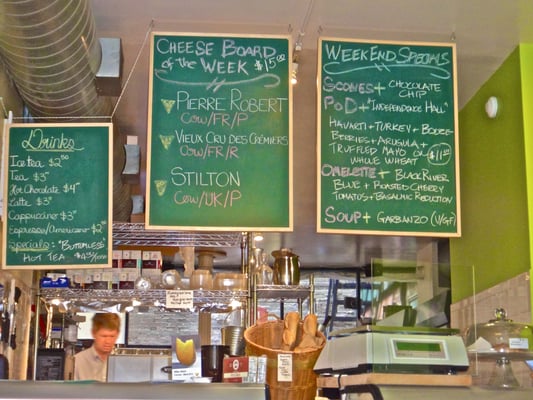 Drinks
Ice tea $2.50
Tea $3
Hot Chocolate $4
Latte $3
Cappuccino $3
Espresso/Americano $2
Specialty: "Butterless"
Hot Tea
Cheese Board
of the Week $15.00
Pierre Robert
Cow/FR/P
Vieux Cru des Crémiers
Cow/FR/R
Stilton
Cow/UK/P
Weekend Specials
Scones + Chocolate
Chip
PoD + "Independence Hall"
Havarti + Turkey + Booze-
Berries + Arugula +
Truffled Mayo on
Whole Wheat
Omelette + Black River
Blue + Roasted Cherry
Tomatos + Balsamic Reduction
Soup + Garbanzo (V/GF)